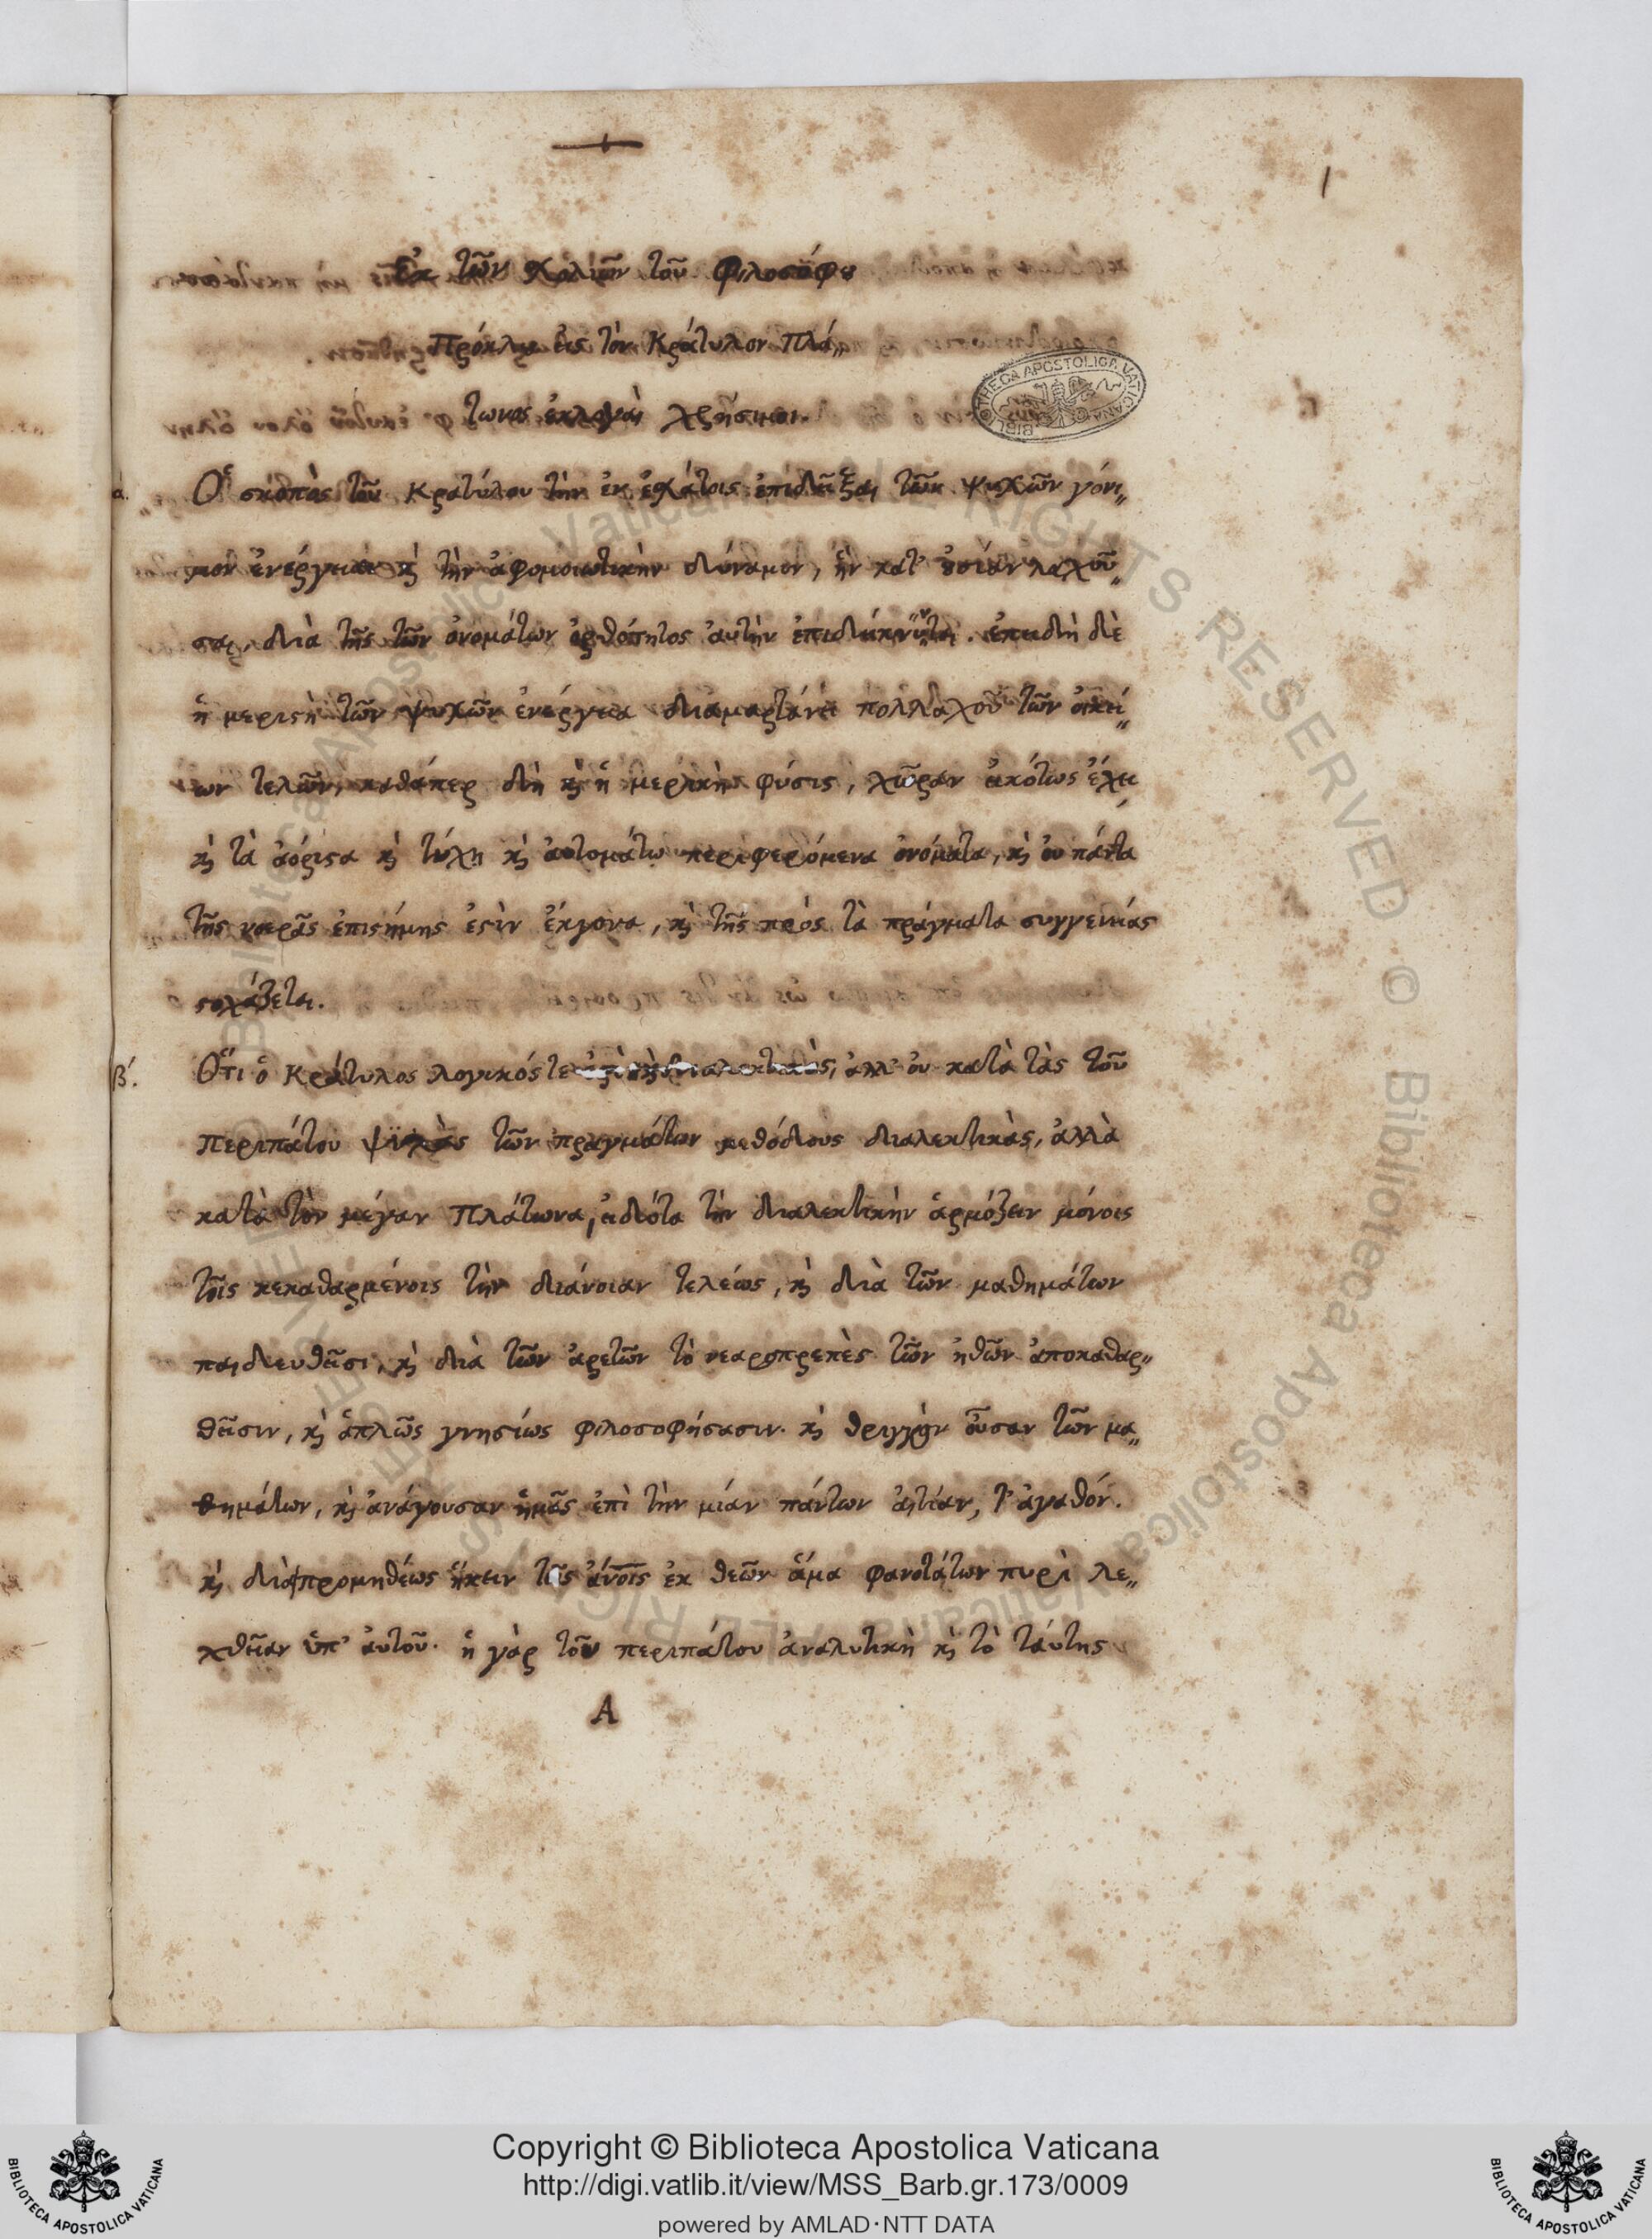 1
Ἐκ τῶν σχολιῶν τοῦ Φιλοσόφου
Πρόκλου εἰς τὸν Κράτυλον Πλά„
τωνος ἐκλογαὶ χρήσιμοι.
α. Ὁ σκοπὸς τοῦ Κρατύλου τὴν ἐκ ἐσχάτοις ἐπιδεῖξαι τῶν ψυχῶν γόνι„
μον ἐνέργειαν καὶ τὴν ἀφομοιωτικὴν δύναμιν, ἣν κατ' οὐσίαν λαχοῦ„
σαι, διὰ τῆς τῶν ὀνομάτων ὀρθότητος αὐτὴν ἐπιδείκνυται. ἐπειδὴ δὲ
ἡ μεριστὴ τῶν ψυχῶν ἐνέργεια διαμαρτάνει πολλαχοῦ τῶν οἰκεί„
ων τελῶν, καθάπερ δὴ καὶ ἡ μερικὴ φύσις, χῶραν εἰκότως ἔχει
καὶ τὰ ἀόριστα καὶ τύχη καὶ αὐτομάτω περιφερόμενα ὀνόματα, καὶ οὐ πάντα
τῆς νοερᾶς ἐπιστήμης ἐστὶν ἔκγονα, καὶ τῆς πρὸς τὰ πράγματα συγγενείας
στοχάζεται.
β. Ὅτι ὁ Κράτυλος λογικός τε ἐστὶ καὶ διαλεκτικὸς, ἀλλ' οὐ κατὰ τὰς τοῦ
περιπάτου ψιλὰς τῶν πραγμάτων μεθόδους διαλεκτικὰς, ἀλλὰ
κατὰ τὸν μέγαν Πλάτωνα, εἰδότα τὴν διαλεκτικὴν ἁρμόζειν μόνοις
τοῖς κεκαθαρμένοις τὴν διάνοιαν τελέως, καὶ διὰ τῶν μαθημάτων
παιδευθεῖσι, καὶ διὰ τῶν ἀρετῶν τὸ νεαροπρεπὲς τῶν ἠθῶν ἀποκαθαρ„
θεῖσιν, καὶ ἁπλῶς γνησίως φιλοσοφήσασιν. καὶ θριγγὸν οὖσαν τῶν μα„
θημάτων, καὶ ἀνάγουσαν ἡμᾶς ἐπὶ τὴν μίαν πάντων αἰτίαν, τ' ἀγαθόν.
καὶ διὰ προμηθέως ἥκειν τοῖς ἀνοις ἐκ θεῶν ἅμα φανοτάτων πυρὶ λε„
χθεῖαν ὑπ' αὐτοῦ. ἡ γὰρ τοῦ περιπάτου ἀναλυτικὴ καὶ τὸ ταύτης
A
BIBLIOTHECA APOSTOLICA VATICANA
Copyright © Biblioteca Apostolica Vaticana
http://digi.vatlib.it/view/MSS_Barb.gr.173/0009
powered by AMLAD·NTT DATA
BIBLIOTECA APOSTOLICA VATICANA
BIBLIOTECA APOSTOLICA VATICANA